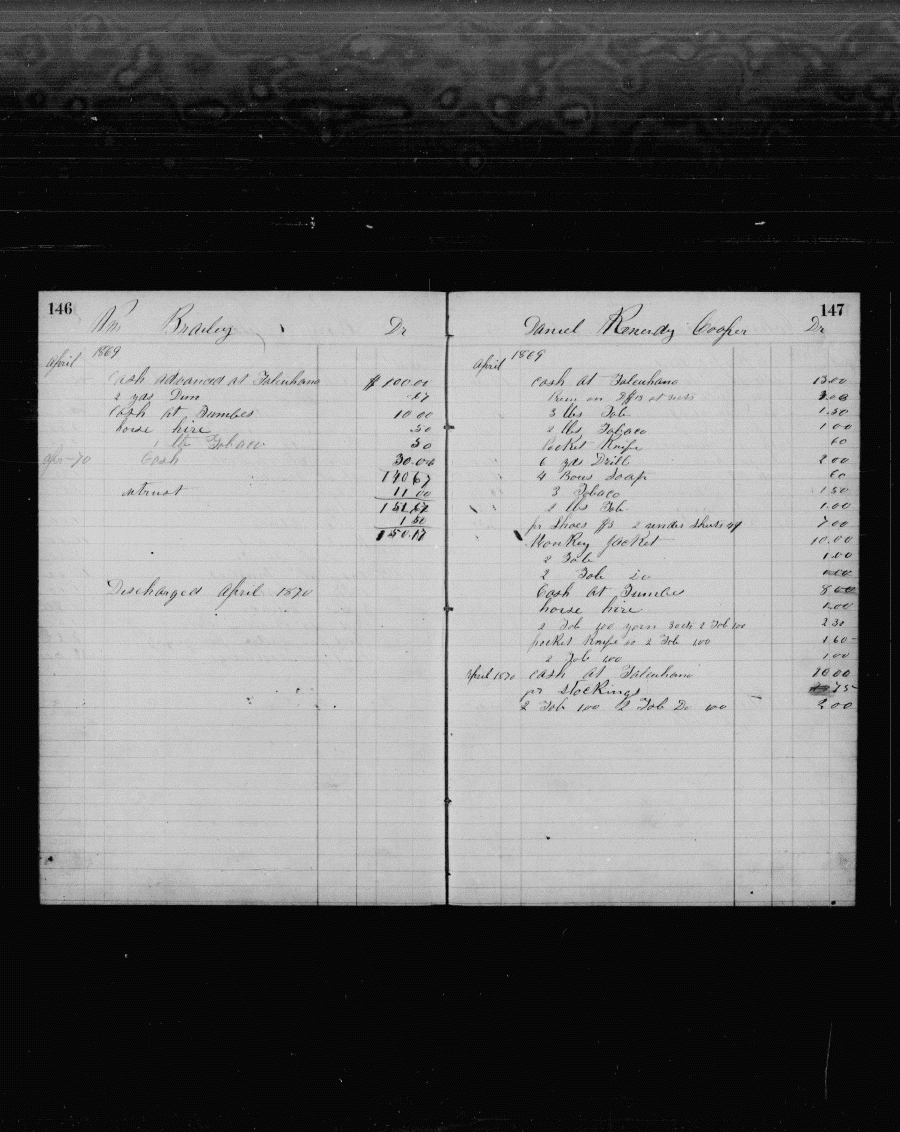 146
Wm Brailey Dr
1869
April
Cash advanced at Talcuhano $ 100.00
2 yds Dim .17
Cash at Tumbes 10 00
horse hire 50
1 lb Tobaco 50
Apr-70 Cash 30.00
140 67
intrust 11 00
151.67
1 50
150.17
Discharged April 1870
147
Daniel Kenerdy Cooper Dr
1869
April
Cash at Talcuhano 15.00
3 lbs Tob 1.50
2 lbs Tobaco 1 00
Pocket Knife 60
6 yds Drill 2 00
4 Bars Soap 60
3 Tobaco 1 50
2 lbs Tob 1.00
pr Shoes 2 under Shirts 7 00
Monkey Jacket 10.00
2 Tob 1.00
2 Tob
Cash at Tumbes
horse hire 1.00
2 Tob 100 yarn Socks 2 Tob 100 2 50
pocket Knife 60 2 Tob 100 1.60
2 Tob 100 1.00
April 1870 Cash at Talcuhano 10 00
pr Stockings 75
2 Tob 100 2 Tob Do 100 2 00